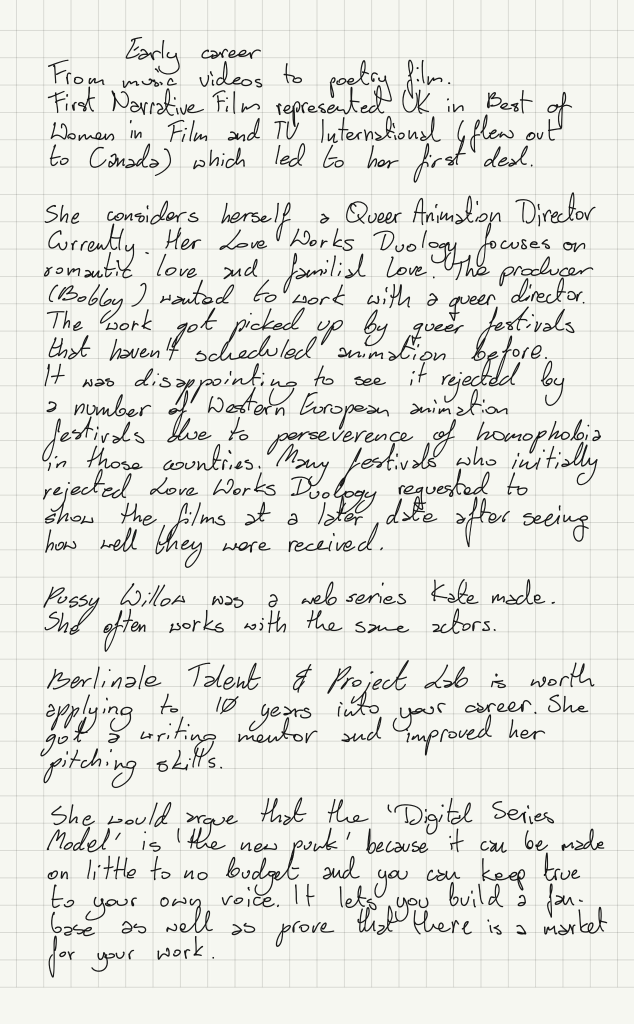 Early career
From music videos to poetry film.
First Narrative Film represented UK in Best of
Women in Film and TV International (flew out
to Canada) which led to her first deal.
She considers herself a Queer Animation Director
Currently. Her Love Works Duology focuses on
romantic love and familial love. The producer
(Bobby) wanted to work with a queer director.
The work got picked up by queer festivals
that haven't scheduled animation before.
It was disappointing to see it rejected by
a number of Western European animation
festivals due to perseverence of homophobia
in those countries. Many festivals who initially
rejected Love Works Duology requested to
show the films at a later date after seeing
how well they were received.
Pussy Willow was a web series Kate made.
She often works with the same actors.
Berlinale Talent & Project Lab is worth
applying to 10 years into your career. She
got a writing mentor and improved her
pitching skills.
She would argue that the "Digital Series
Model' is 'the new punk' because it can be made
on little to no budget and you can keep true
to your own voice. It lets you build a fan-
base as well as prove that there is a market
for your work.